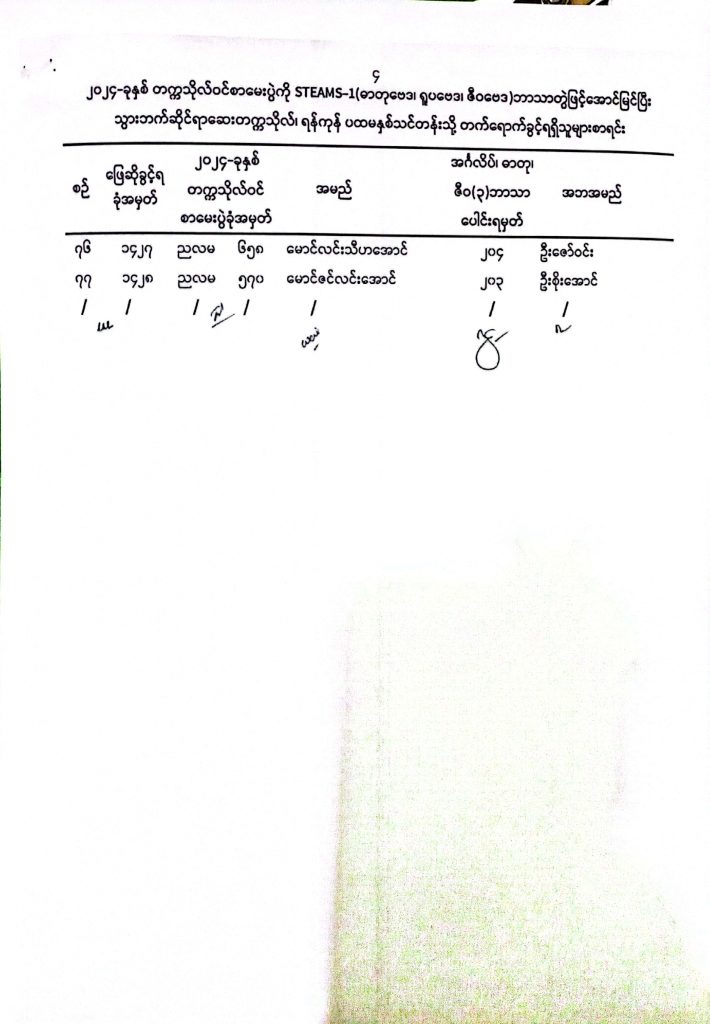 ၄
၂၀၂၄-ခုနှစ် တက္ကသိုလ်ဝင်စာမေးပွဲကို STEAMS-1(ဓာတုဗေဒ၊ ရူပဗေဒ၊ ဇီဝဗေဒ)ဘာသာတွဲဖြင့်အောင်မြင်ပြီး
သွားဘက်ဆိုင်ရာဆေးတက္ကသိုလ်၊ ရန်ကုန် ပထမနှစ်သင်တန်းသို့ တက်ရောက်ခွင့်ရရှိသူများစာရင်း
စဉ် ဖြေဆိုခွင့်ရ ခုံအမှတ် ၂၀၂၄-ခုနှစ် တက္ကသိုလ်ဝင် စာမေးပွဲခုံအမှတ် အမည် အင်္ဂလိပ်၊ ဓာတု၊ ဇီဝ(၃)ဘာသာ ပေါင်းရမှတ် အဘအမည်
၇၆ ၁၄၂၇ ညလမ ၆၅၈ မောင်လင်းသီဟအောင် ၂၀၄ ဦးဇော်ဝင်း
၇၇ ၁၄၂၈ ညလမ ၅၇၀ မောင်ဇင်လင်းအောင် ၂၀၃ ဦးစိုးအောင်
/ / / / / / /